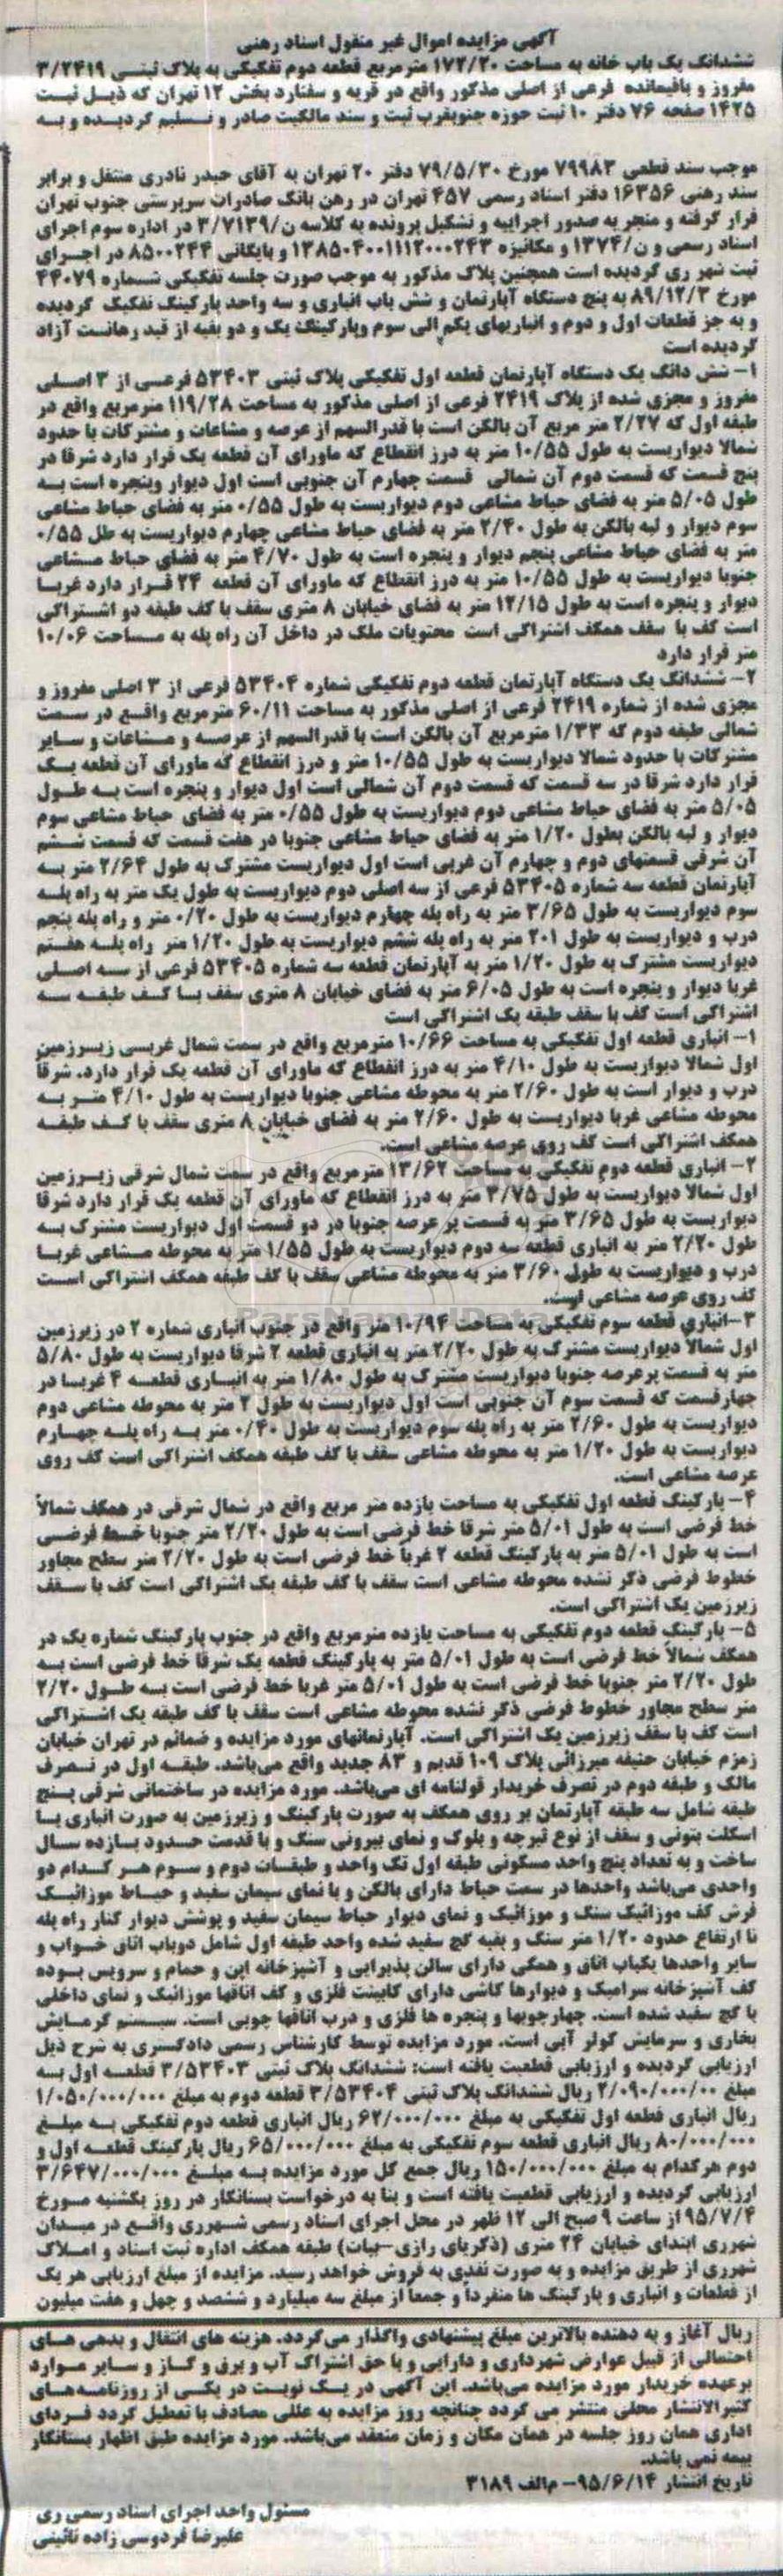 آگهی مزایده اموال غیر منقول اسناد رهنی
ششدانگ یک باب خانه به مساحت ۱۷۲/۲۰ مترمربع قطعه دوم تفکیکی به پلاک ثبتی ۳/۲۴۱۹
مفروز و باقیمانده فرعی از اصلی مذکور واقع در قریه و سفتارد بخش ۱۲ تهران که ذیل ثبت
۱۴۲۵ صفحه ۷۶ دفتر ۱۰ ثبت حوزه جنوبغرب ثبت و سند مالکیت صادر و تسلیم گردیده و به
موجب سند قطعی ۷۹۹۸۳ مورخ ۷۹/۵/۳۰ دفتر ۲۰ تهران به آقای حیدر نادری منتقل و برابر
سند رهنی ۱۶۳۵۶ دفتر اسناد رسمی ۴۵۷ تهران در رهن بانک صادرات سرپرستی جنوب تهران
قرار گرفته و منجر به صدور اجراییه و تشکیل پرونده به کلاسه ن/۳/۷۱۳۹ در اداره سوم اجرای
اسناد رسمی و ن/۱۳۷۴ و مکانیزه ۱۳۸۵۰۴۰۰۱۱۱۲۰۰۰۲۴۳ و بایگانی ۸۵۰۰۲۴۴ در اجرای
ثبت شهر ری گردیده است همچنین پلاک مذکور به موجب صورت جلسه تفکیکی شماره ۴۴۰۷۹
مورخ ۸۹/۱۲/۳ به پنج دستگاه آپارتمان و شش باب انباری و سه واحد پارکینگ تفکیک گردیده
و به جز قطعات اول و دوم و انباریهای یکم الی سوم وپارکینگ یک و دو بقیه از قید رهانت آزاد
گردیده است
۱- شش دانگ یک دستگاه آپارتمان قطعه اول تفکیکی پلاک ثبتی ۵۳۴۰۳ فرعی از ۳ اصلی
مفروز و مجزی شده از پلاک ۲۴۱۹ فرعی از اصلی مذکور به مساحت ۱۱۹/۲۸ مترمربع واقع در
طبقه اول که ۲/۲۷ متر مربع آن بالکن است با قدرالسهم از عرصه و مشاعات و مشترکات با حدود
شمالا دیواریست به طول ۱۰/۵۵ متر به درز انقطاع که ماورای آن قطعه یک قرار دارد شرقا در
پنج قسمت که قسمت دوم آن شمالی قسمت چهارم آن جنوبی است اول دیوار وپنجره است به
طول ۵/۰۵ متر به فضای حیاط مشاعی دوم دیواریست به طول ۰/۵۵ متر به فضای حیاط مشاعی
سوم دیوار و لبه بالکن به طول ۲/۴۰ متر به فضای حیاط مشاعی چهارم دیواریست به طل ۰/۵۵
متر به فضای حیاط مشاعی پنجم دیوار و پنجره است به طول ۴/۷۰ متر به فضای حیاط مشاعی
جنوبا دیواریست به طول ۱۰/۵۵ متر به درز انقطاع که ماورای آن قطعه ۲۴ قرار دارد غربا
دیوار و پنجره است به طول ۱۲/۱۵ متر به فضای خیابان ۸ متری سقف با کف طبقه دو اشتراکی
است کف با سقف همکف اشتراکی است محتویات ملک در داخل آن راه پله به مساحت ۱۰/۰۶
متر قرار دارد
۲- ششدانگ یک دستگاه آپارتمان قطعه دوم تفکیکی شماره ۵۳۴۰۴ فرعی از ۳ اصلی مفروز و
مجزی شده از شماره ۲۴۱۹ فرعی از اصلی مذکور به مساحت ۶۰/۱۱ مترمربع واقع در سمت
شمالی طبقه دوم که ۱/۳۳ مترمربع آن بالکن است با قدرالسهم از عرصه و مشاعات و سایر
مشترکات با حدود شمالا دیواریست به طول ۱۰/۵۵ متر و درز انقطاع که ماورای آن قطعه یک
قرار دارد شرقا در سه قسمت که قسمت دوم آن شمالی است اول دیوار و پنجره است به طول
۵/۰۵ متر به فضای حیاط مشاعی دوم دیواریست به طول ۰/۵۵ متر به فضای حیاط مشاعی سوم
دیوار و لبه بالکن بطول ۱/۲۰ متر به فضای حیاط مشاعی جنوبا در هفت قسمت که قسمت ششم
آن شرقی قسمتهای دوم و چهارم آن غربی است اول دیواریست مشترک به طول ۲/۶۴ متر به
آپارتمان قطعه سه شماره ۵۳۴۰۵ فرعی از سه اصلی دوم دیواریست به طول یک متر به راه پله
سوم دیواریست به طول ۳/۶۵ متر به راه پله چهارم دیواریست به طول ۰/۲۰ متر و راه پله پنجم
درب و دیواریست به طول ۲۰۱ متر به راه پله ششم دیواریست به طول ۱/۲۰ متر راه پله هفتم
دیواریست مشترک به طول ۱/۲۰ متر به آپارتمان قطعه سه شماره ۵۳۴۰۵ فرعی از سه اصلی
غربا دیوار و پنجره است به طول ۶/۰۵ متر به فضای خیابان ۸ متری سقف با کف طبقه سه
اشتراکی است کف با سقف طبقه یک اشتراکی است
۱- انباری قطعه اول تفکیکی به مساحت ۱۰/۶۶ مترمربع واقع در سمت شمال غربی زیرزمین
اول شمالا دیواریست به طول ۴/۱۰ متر به درز انقطاع که ماورای آن قطعه یک قرار دارد. شرقاً
درب و دیوار است به طول ۲/۶۰ متر به محوطه مشاعی جنوبا دیواریست به طول ۴/۱۰ متر به
محوطه مشاعی غربا دیواریست به طول ۲/۶۰ متر به فضای خیابان ۸ متری سقف با کف طبقه
همکف اشتراکی است کف روی عرصه مشاعی است.
۲- انباری قطعه دوم تفکیکی به مساحت ۱۳/۶۲ مترمربع واقع در سمت شمال شرقی زیرزمین
اول شمالا دیواریست به طول ۳/۷۵ متر به درز انقطاع که ماورای آن قطعه یک قرار دارد شرقا
دیواریست به طول ۳/۶۵ متر به قسمت پر عرصه جنوبا در دو قسمت اول دیواریست مشترک به
طول ۲/۲۰ متر به انباری قطعه سه دوم دیواریست به طول ۱/۵۵ متر به محوطه مشاعی غربا
درب و دیواریست به طول ۳/۶۰ متر به محوطه مشاعی سقف با کف طبقه همکف اشتراکی است
کف روی عرصه مشاعی است.
۳-انباری قطعه سوم تفکیکی به مساحت ۱۰/۹۴ متر واقع در جنوب انباری شماره ۲ در زیرزمین
اول شمالاً دیواریست مشترک به طول ۲/۲۰ متر به انباری قطعه ۲ شرقا دیواریست به طول ۵/۸۰
متر به قسمت پرعرصه جنوبا دیواریست مشترک به طول ۱/۸۰ متر به انباری قطعه ۴ غربا در
چهارقسمت که قسمت سوم آن جنوبی است اول دیواریست به طول ۲ متر به محوطه مشاعی دوم
دیواریست به طول ۲/۶۰ متر به راه پله سوم دیواریست به طول ۰/۴۰ متر به راه پله چهارم
دیواریست به طول ۱/۲۰ متر به محوطه مشاعی سقف با کف طبقه همکف اشتراکی است کف روی
عرصه مشاعی است.
۴- پارکینگ قطعه اول تفکیکی به مساحت یازده متر مربع واقع در شمال شرقی در همکف شمالاً
خط فرضی است به طول ۵/۰۱ متر شرقا خط فرضی است به طول ۲/۲۰ متر جنوبا خط فرضی
است به طول ۵/۰۱ متر به پارکینگ قطعه ۲ غرباً خط فرضی است به طول ۲/۲۰ متر سطح مجاور
خطوط فرضی ذکر نشده محوطه مشاعی است سقف با کف طبقه یک اشتراکی است کف با سقف
زیرزمین یک اشتراکی است.
۵- پارکینگ قطعه دوم تفکیکی به مساحت یازده مترمربع واقع در جنوب پارکینگ شماره یک در
همکف شمالاً خط فرضی است به طول ۵/۰۱ متر به پارکینگ قطعه یک شرقا خط فرضی است به
طول ۲/۲۰ متر جنوبا خط فرضی است به طول ۵/۰۱ متر غربا خط فرضی است به طول ۲/۲۰
متر سطح مجاور خطوط فرضی ذکر نشده محوطه مشاعی است سقف با کف طبقه یک اشتراکی
است کف با سقف زیرزمین یک اشتراکی است. آپارتمانهای مورد مزایده و ضمائم در تهران خیابان
زمزم خیابان حنیفه میرزائی پلاک ۱۰۹ قدیم و ۸۳ جدید واقع می‌باشد. طبقه اول در تصرف
مالک و طبقه دوم در تصرف خریدار قولنامه ای می‌باشد. مورد مزایده در ساختمانی شرقی پنج
طبقه شامل سه طبقه آپارتمان بر روی همکف به صورت پارکینگ و زیرزمین به صورت انباری با
اسکلت بتونی و سقف از نوع تیرچه و بلوک و نمای بیرونی سنگ و با قدمت حدود یازده سال
ساخت و به تعداد پنج واحد مسکونی طبقه اول تک واحد و طبقات دوم و سوم هر کدام دو
واحدی می‌باشد واحدها در سمت حیاط دارای بالکن و با نمای سیمان سفید و حیاط موزائیک
فرش کف موزائیک سنگ و موزائیک و نمای دیوار حیاط سیمان سفید و پوشش دیوار کنار راه پله
تا ارتفاع حدود ۱/۲۰ متر سنگ و بقیه گچ سفید شده واحد طبقه اول شامل دوباب اتاق خواب و
سایر واحدها یکباب اتاق و همگی دارای سالن پذیرایی و آشپزخانه اپن و حمام و سرویس بوده
کف آشپزخانه سرامیک و دیوارها کاشی دارای کابینت فلزی و کف اتاقها موزائیک و نمای داخلی
با گچ سفید شده است. چهارچوبها و پنجره ها فلزی و درب اتاقها چوبی است. سیستم گرمایش
بخاری و سرمایش کولر آبی است. مورد مزایده توسط کارشناس رسمی دادگستری به شرح ذیل
ارزیابی گردیده و ارزیابی قطعیت یافته است: ششدانگ پلاک ثبتی ۳/۵۳۴۰۳ قطعه اول به
مبلغ ۲/۰۹۰/۰۰۰/۰۰ ریال ششدانگ پلاک ثبتی ۳/۵۳۴۰۴ قطعه دوم به مبلغ ۱/۰۵۰/۰۰۰/۰۰۰
ریال انباری قطعه اول تفکیکی به مبلغ ۶۲/۰۰۰/۰۰۰ ریال انباری قطعه دوم تفکیکی به مبلغ
۸۰/۰۰۰/۰۰۰ ریال انباری قطعه سوم تفکیکی به مبلغ ۶۵/۰۰۰/۰۰۰ ریال پارکینگ قطعه اول و
دوم هرکدام به مبلغ ۱۵۰/۰۰۰/۰۰۰ ریال جمع کل مورد مزایده به مبلغ ۳/۶۴۷/۰۰۰/۰۰۰
ارزیابی گردیده و ارزیابی قطعیت یافته است و بنا به درخواست بستانکار در روز یکشنبه مورخ
۹۵/۷/۴ از ساعت ۹ صبح الی ۱۲ ظهر در محل اجرای اسناد رسمی شهرری واقع در میدان
شهرری ابتدای خیابان ۲۴ متری (ذکریای رازی-بیات) طبقه همکف اداره ثبت اسناد و املاک
شهرری از طریق مزایده و به صورت نقدی به فروش خواهد رسید. مزایده از مبلغ ارزیابی هر یک
از قطعات و انباری و پارکینگ ها منفرداً و جمعاً از مبلغ سه میلیارد و ششصد و چهل و هفت میلیون
ریال آغاز و به دهنده بالاترین مبلغ پیشنهادی واگذار می‌گردد. هزینه های انتقال و بدهی های
احتمالی از قبیل عوارض شهرداری و دارایی و یا حق اشتراک آب و برق و گاز و سایر موارد
برعهده خریدار مورد مزایده می‌باشد. این آگهی در یک نوبت در یکی از روزنامه‌های
کثیرالانتشار محلی منتشر می گردد چنانچه روز مزایده به عللی مصادف با تعطیل گردد فردای
اداری همان روز جلسه در همان مکان و زمان منعقد می‌باشد. مورد مزایده طبق اظهار بستانکار
بیمه نمی باشد.
تاریخ انتشار ۹۵/۶/۱۴- م‌الف ۳۱۸۹
مسئول واحد اجرای اسناد رسمی ری
علیرضا فردوسی زاده نائینی
ParsNamadData